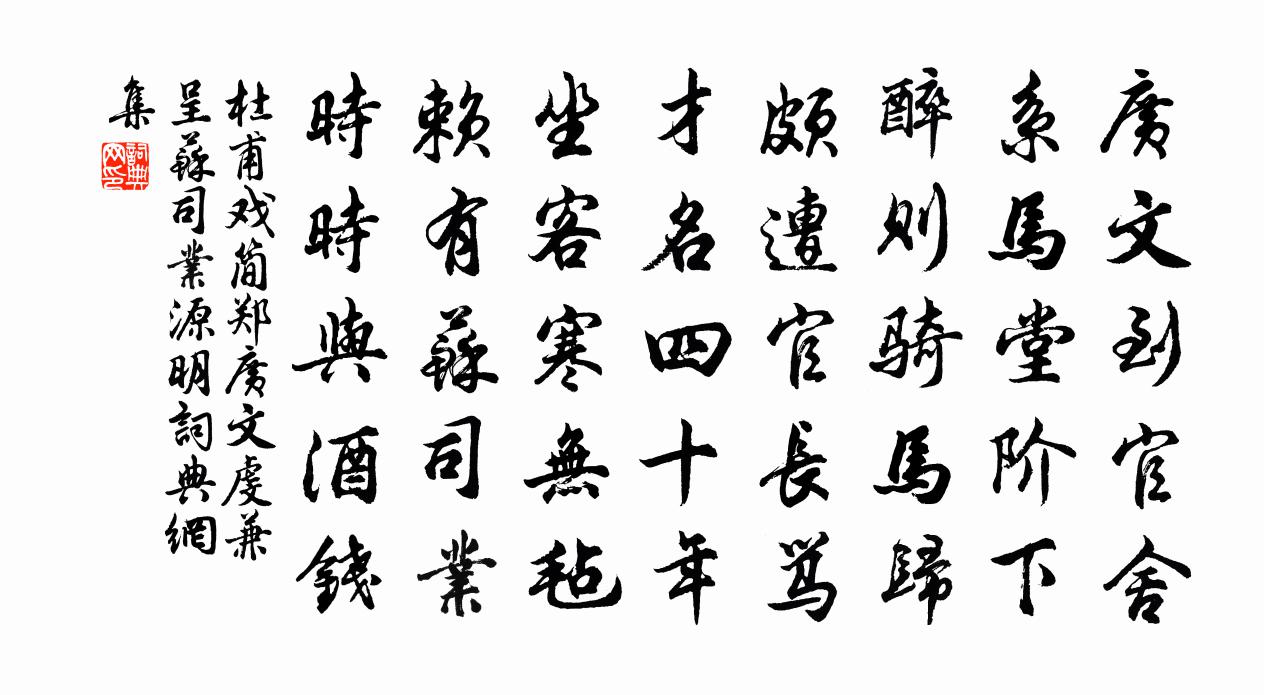 廣文到官舍
系馬堂阶下
醉則骑馬歸
頗遭官長骂
才名四十年
坐客寒無毡
賴有蘇司業
時時與酒錢
杜甫戏简郑廣文虔兼
呈蘇司業源明詞典網
集
詞典网印